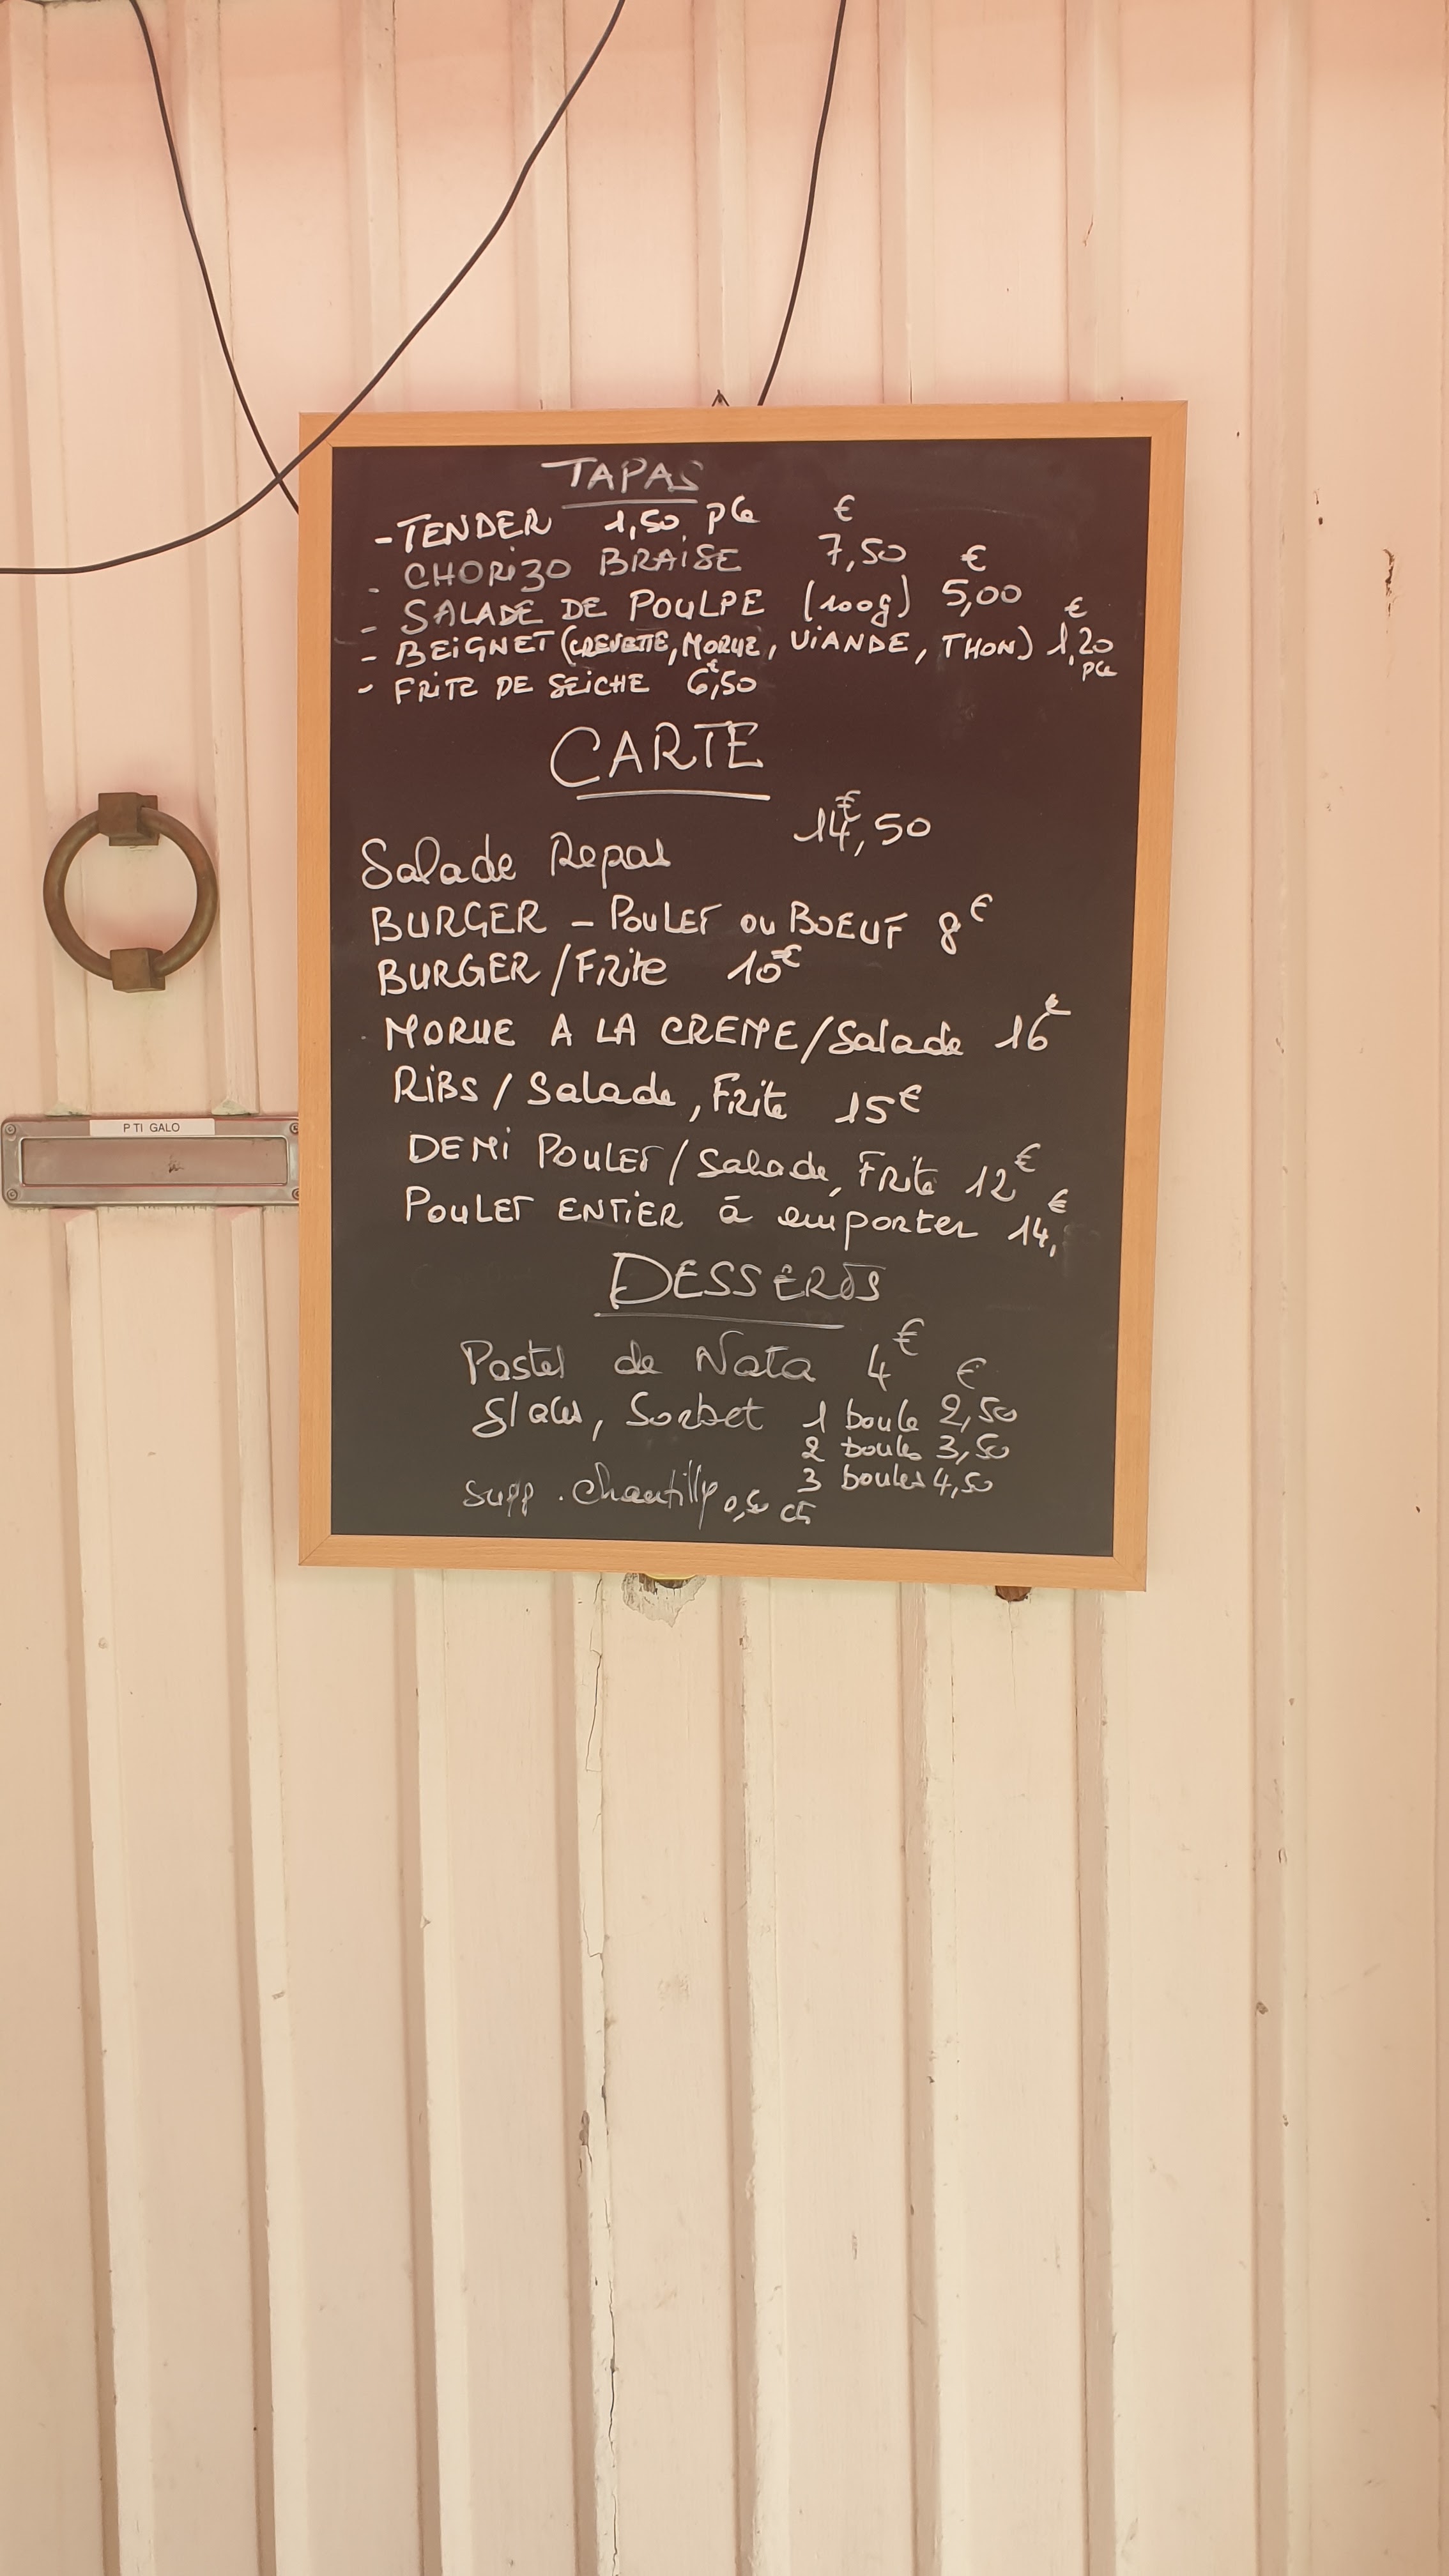 TAPAS
-TENDER 1,50 pce €
- CHORIZO BRAISE 7,50 €
- SALADE DE POULPE (100g) 5,00 €
- BEIGNET (CREVETTE, MORUE, VIANDE, THON) 1,20 pce
- FRITE DE SEICHE 6,50 €
CARTE
Salade Repas 14,50 €
BURGER - POULET OU BOEUF 8€
BURGER/Frite 10€
- MORUE A LA CREME/Salade 16€
RIBS / Salade, Frite 15€
DEMI POULET/Salade, Frite 12€
POULET ENTIER à emporter 14,€
DESSERTS
Pastel de Nata 4€
€
glaces, Sorbet 1 boule 2,50
2 boules 3,50
3 boules 4,50
supp. chantilly 0,50 ct
P TI GALO